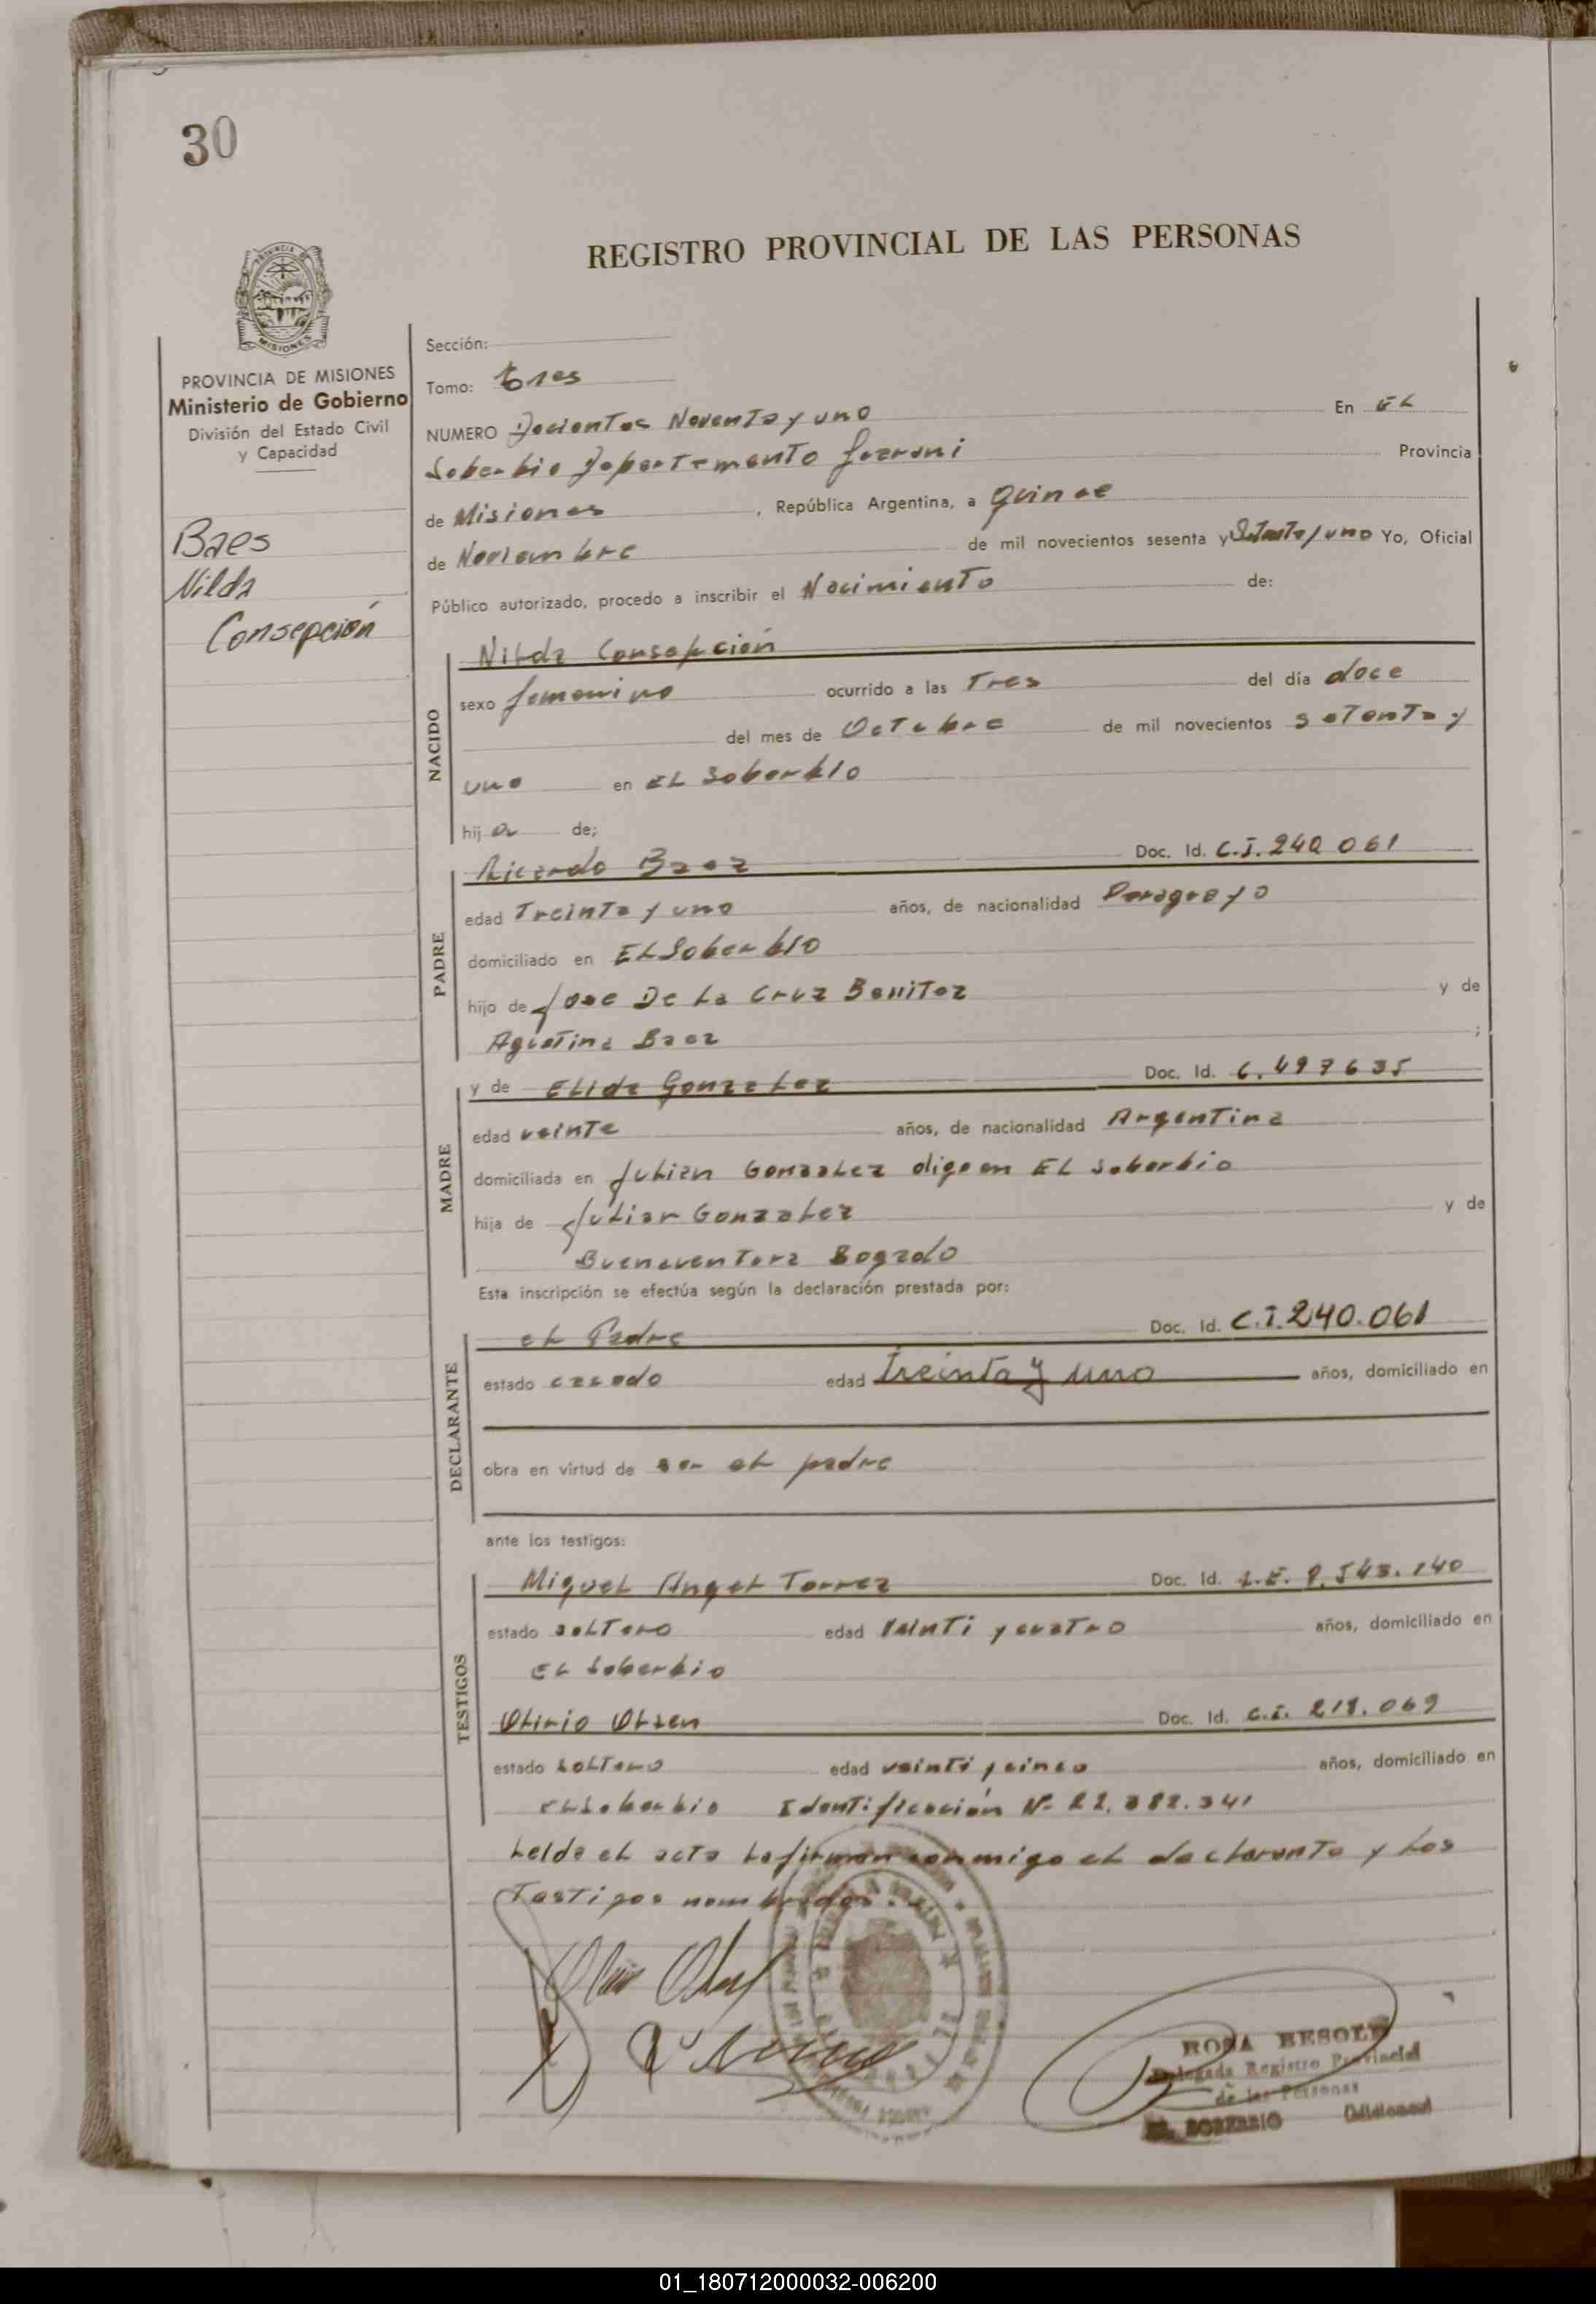 30
REGISTRO PROVINCIAL DE LAS PERSONAS
PROVINCIA
MISIONES
PROVINCIA DE MISIONES
Ministerio de Gobierno
División del Estado Civil
y Capacidad
Baes
Nilda
Consepción
Sección:
Tomo: tres
NUMERO Docientos Noventa y uno En EL
Soberbio Departamento Guarani Provincia
de Misiones, República Argentina, a Quince
de Noviembre de mil novecientos sesenta y Setenta y uno Yo, Oficial
Público autorizado, procedo a inscribir el Nacimiento de:
NACIDO
Nilda Consepción
sexo femenino ocurrido a las Tres del día doce
del mes de Octubre de mil novecientos setenta y
uno en EL Soberbio
hija de;
PADRE
Ricardo Baez Doc. Id. C.I. 240 061
edad Treinta y uno años, de nacionalidad Paraguayo
domiciliado en EL Soberbio
hijo de Jose De La Cruz Benitez y de
Agustina Baez ;
MADRE
y de Elida Gonzalez Doc. Id. 6.497635
edad veinte años, de nacionalidad Argentina
domiciliada en Julian Gonzalez digo en EL Soberbio
hija de Julian Gonzalez y de
Buenaventura Bogado
Esta inscripción se efectúa según la declaración prestada por:
DECLARANTE
el Padre Doc. Id. C.I. 240.061
estado casado edad treinta y uno años, domiciliado en
obra en virtud de ser el padre
ante los testigos:
TESTIGOS
Miguel Angel Torrez Doc. Id. L.E. 8.543.140
estado soltero edad veinti y cuatro años, domiciliado en
EL Soberbio
Olirio Olsen Doc. Id. C.I. 218.069
estado soltero edad veinti y cinco años, domiciliado en
EL Soberbio Identificación Nº 22.382.341
Leida el acta la firman conmigo el declarante y los
Testigos nombrados.
ROSA BESOLD
Delegada Registro Provincial
de las Personas
EL SOBERBIO (Misiones)
01_180712000032-006200